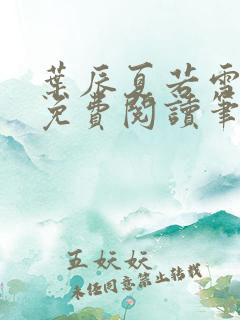 葉辰夏若雪
免費閱讀筆
五妖妖
未经同意禁止转载